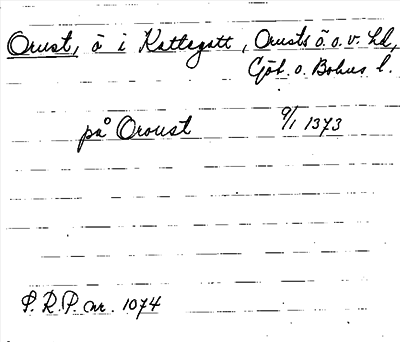 Orust, ö i Kattegatt, Orusts ö. o. v. hd,
Göt. o. Bohus l.
på Oroust 9/1 1373
S. R. P. nr. 1074